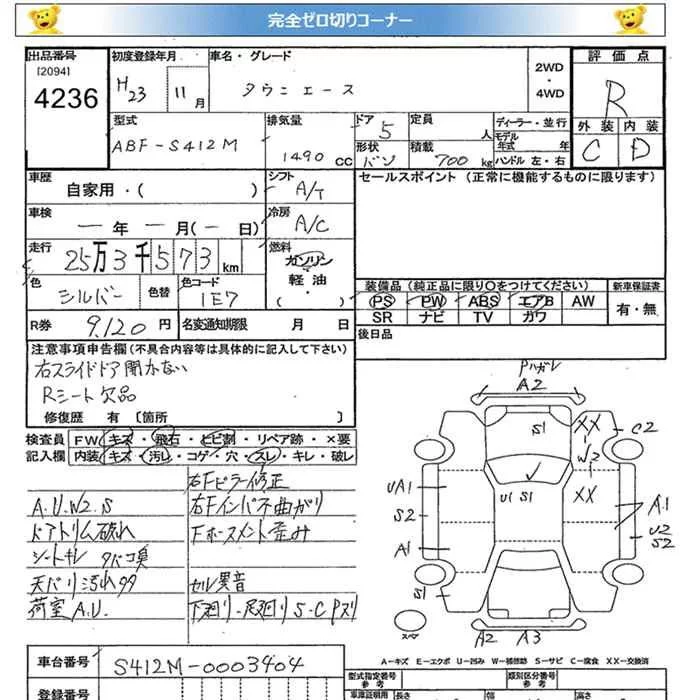 完全ゼロ切りコーナー
出品番号 初度登録年月 車名・グレード 2WD・4WD 評価点
[2094]
4236 H23 11月 タウンエース R
型式 排気量 ドア 5 定員 人 ディーラー・並行 外装 内装
ABF-S412M 1490 CC 形状 バン 積載 700 kg モデル年式 年 ハンドル 左・右 C D
車歴 自家用・( ) シフト A/T セールスポイント (正常に機能するものに限ります)
車検 ー年ー月(ー日) 冷房 A/C
走行 25万3千573km 燃料 ガソリン 軽・油 ( )
色 シルバー 色替 色コード 1E7
装備品 (純正品に限り○をつけてください) 新車保証書
PS PW ABS エアB AW 有・無
SR ナビ TV カワ
R券 9,120円 名変通知期限 月 日 後日品
注意事項申告欄(不具合内容等は具体的に記入して下さい)
右スライドドア開かない
Rシート欠品
修復歴 有 [箇所 ]
検査員 FW キズ・飛石・ヒビ割・リペア跡・×要
記入欄 内装 キズ・汚れ・コゲ・穴・スレ・キレ・破レ
右Fピラー修正
A.U.W2.S 右Fインパネ曲がり
ドアトリム破れ Fホースメント歪み
シートキレ タバコ臭
天バリ汚れ セル異音
荷室A.U. 下廻り・足廻りS・C Pズリ
Pハガレ
A2
S1 XX C2
W2
UA1 U1 S1 XX A1
S2 U2
A1 S2
S1
スペア A2 A3
A-キズ E-エクボ U-凹み W-補修跡 S-サビ C-腐食 XX-交換済
車台番号 S412M-0003404
型式指定番号 参考 類別区分番号 参考
登録番号 車庫証明用 長さ 幅 高さ